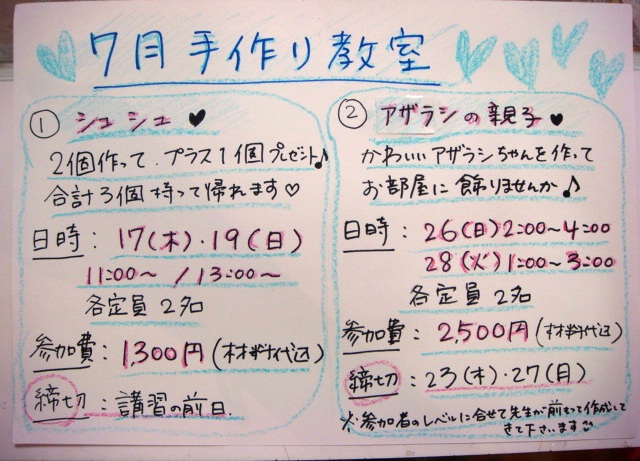 7月手作り教室
① シュシュ ♥
2個作って、プラス1個プレゼント♪
合計3個持って帰れます♡
日時: 17(木)・19(日)
11:00〜 / 13:00〜
各定員 2名
参加費: 1,300円(材料代込)
締切: 講習の前日.
② アザラシの親子 ♥
かわいいアザラシちゃんを作って
お部屋に飾りませんか♪
日時: 26(日)2:00〜4:00
28(火)1:00〜3:00
各定員 2名
参加費: 2,500円(材料代込)
締切: 23(木)・27(月)
※参加者のレベルに合せて先生が前もって作成して
きて下さいます